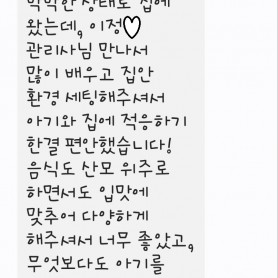 막막한 상태로 집에
왔는데, 이정♡
관리사님 만나서
많이 배우고 집안
환경 세팅해주셔서
아기와 집에 적응하기
한결 편안했습니다!
음식도 산모 위주로
하면서도 입맛에
맞추어 다양하게
해주셔서 너무 좋았고,
무엇보다도 아기를